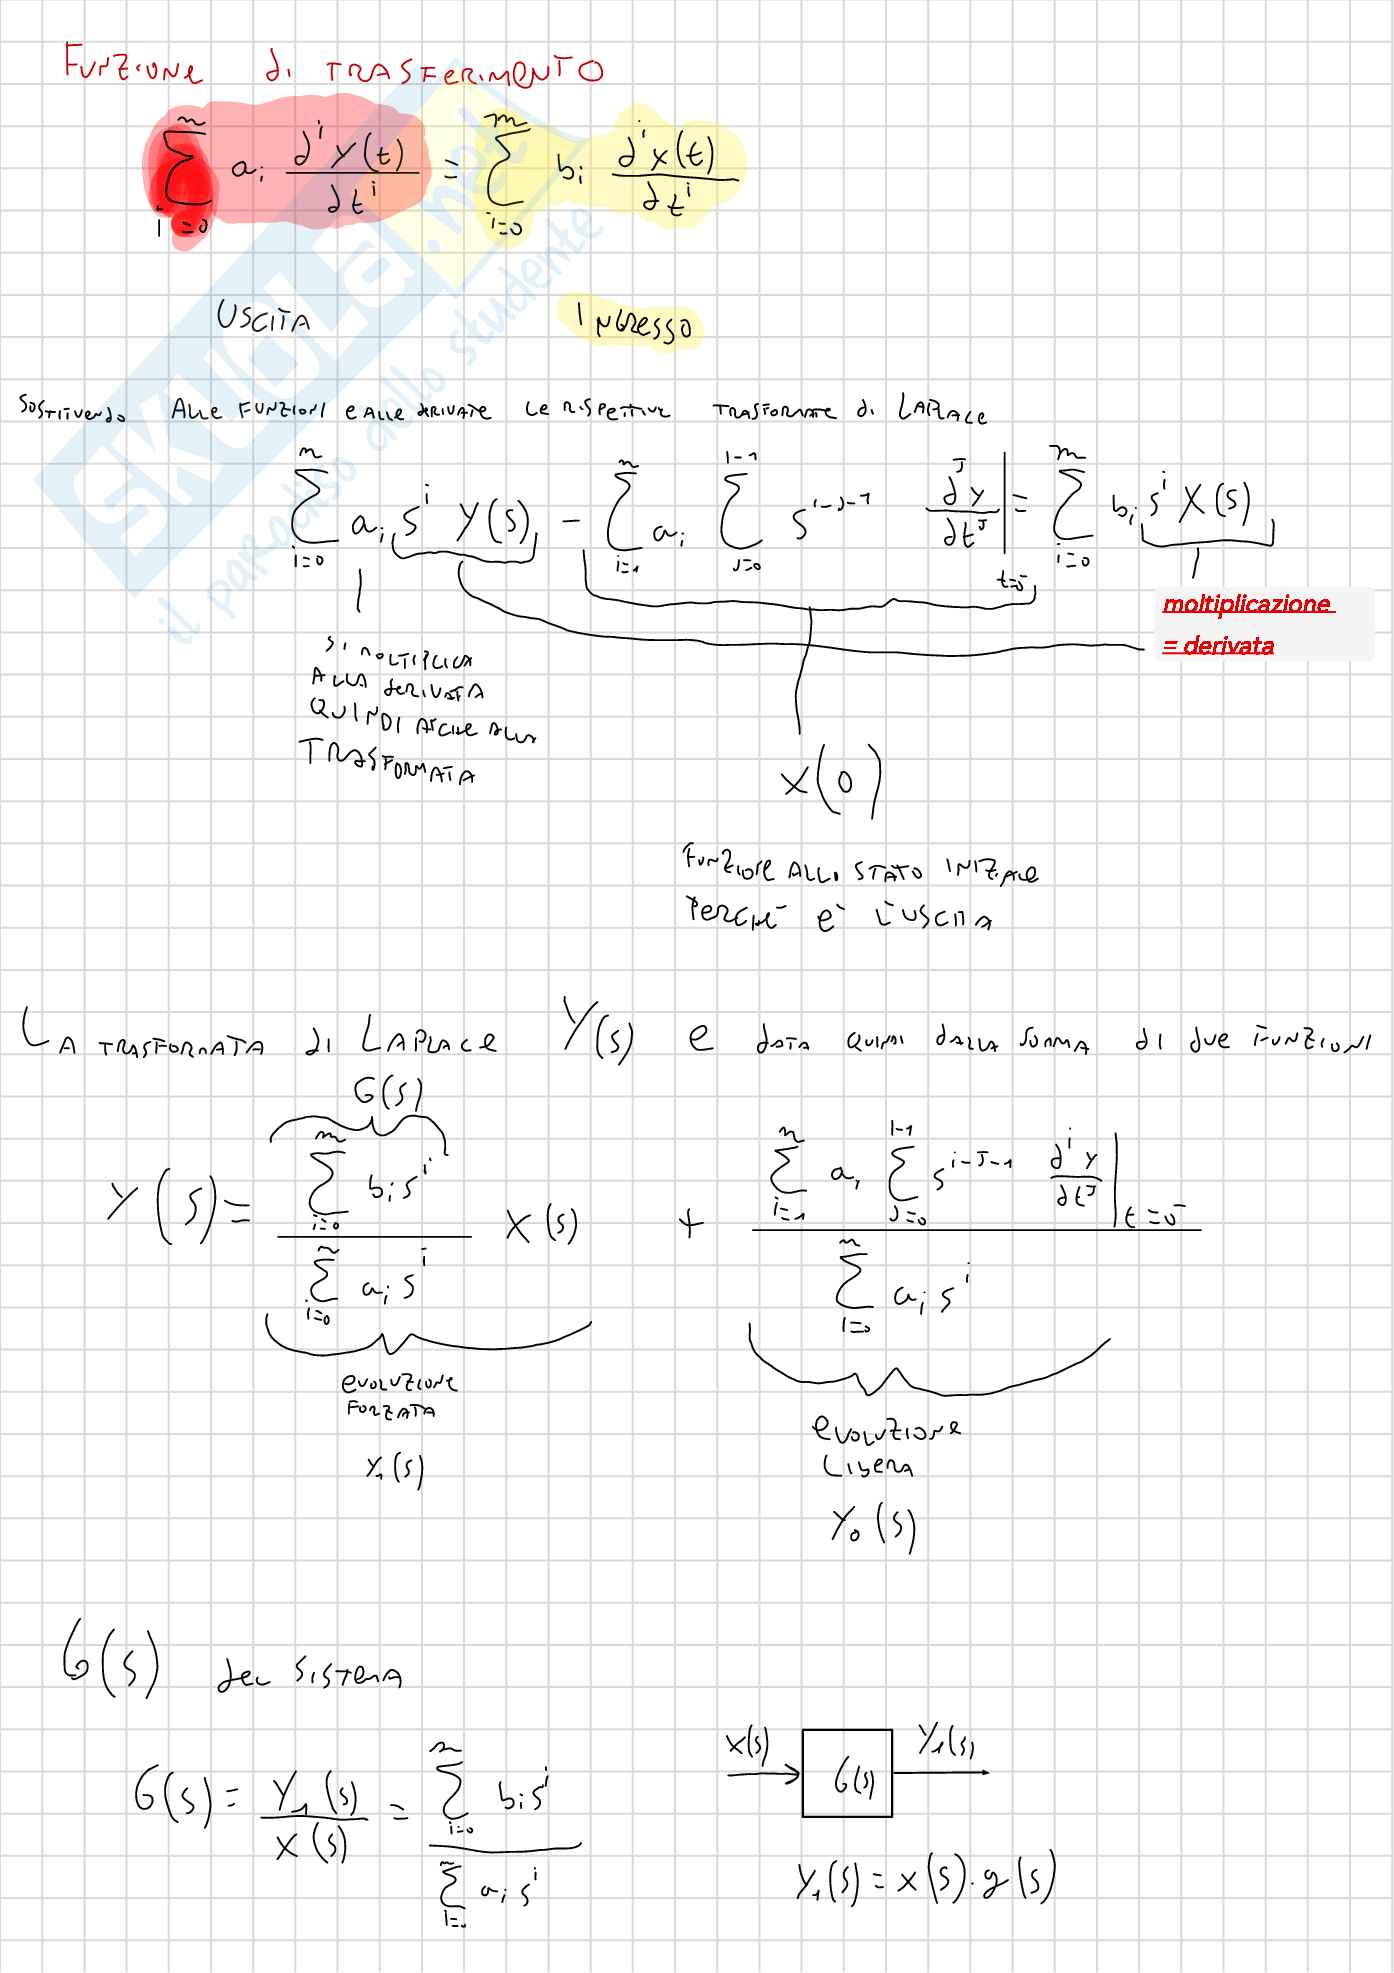 FUNZIONE di TRASFERIMENTO
\sum_{i=0}^{n} a_i \frac{d^i y(t)}{dt^i} = \sum_{i=0}^{m} b_i \frac{d^i x(t)}{dt^i}
USCITA INGRESSO
SOSTITUENDO ALLE FUNZIONI E ALLE DERIVATE LE RISPETTIVE TRASFORMATE di LAPLACE
\sum_{i=0}^{n} a_i s^i Y(s) - \sum_{i=1}^{n} a_i \sum_{J=0}^{i-1} s^{i-J-1} \frac{d^J y}{dt^J} |_{t=0^-} = \sum_{i=0}^{m} b_i s^i X(s)
moltiplicazione
= derivata
SI MOLTIPLICA
ALLA DERIVATA
QUINDI ANCHE ALLA
TRASFORMATA
X(0)
FUNZIONE ALLO STATO INIZIALE
PERCHÈ È L'USCITA
LA TRASFORMATA di LAPLACE Y(s) e DATA QUINDI DALLA SOMMA di due FUNZIONI
G(s)
Y(s) = \frac{\sum_{i=0}^{m} b_i s^i}{\sum_{i=0}^{n} a_i s^i} X(s) + \frac{\sum_{i=1}^{n} a_i \sum_{J=0}^{i-1} s^{i-J-1} \frac{d^i y}{dt^J} |_{t=0^-}}{\sum_{i=0}^{n} a_i s^i}
EVOLUZIONE
FORZATA
Y_1(s)
EVOLUZIONE
LIBERA
Y_0(s)
G(s) del SISTEMA
G(s) = \frac{Y_1(s)}{X(s)} = \frac{\sum_{i=0}^{m} b_i s^i}{\sum_{i=0}^{n} a_i s^i}
X(s) G(s) Y_1(s)
Y_1(s) = x(s) \cdot g(s)
SKUOLA.net
il paradiso dello studente